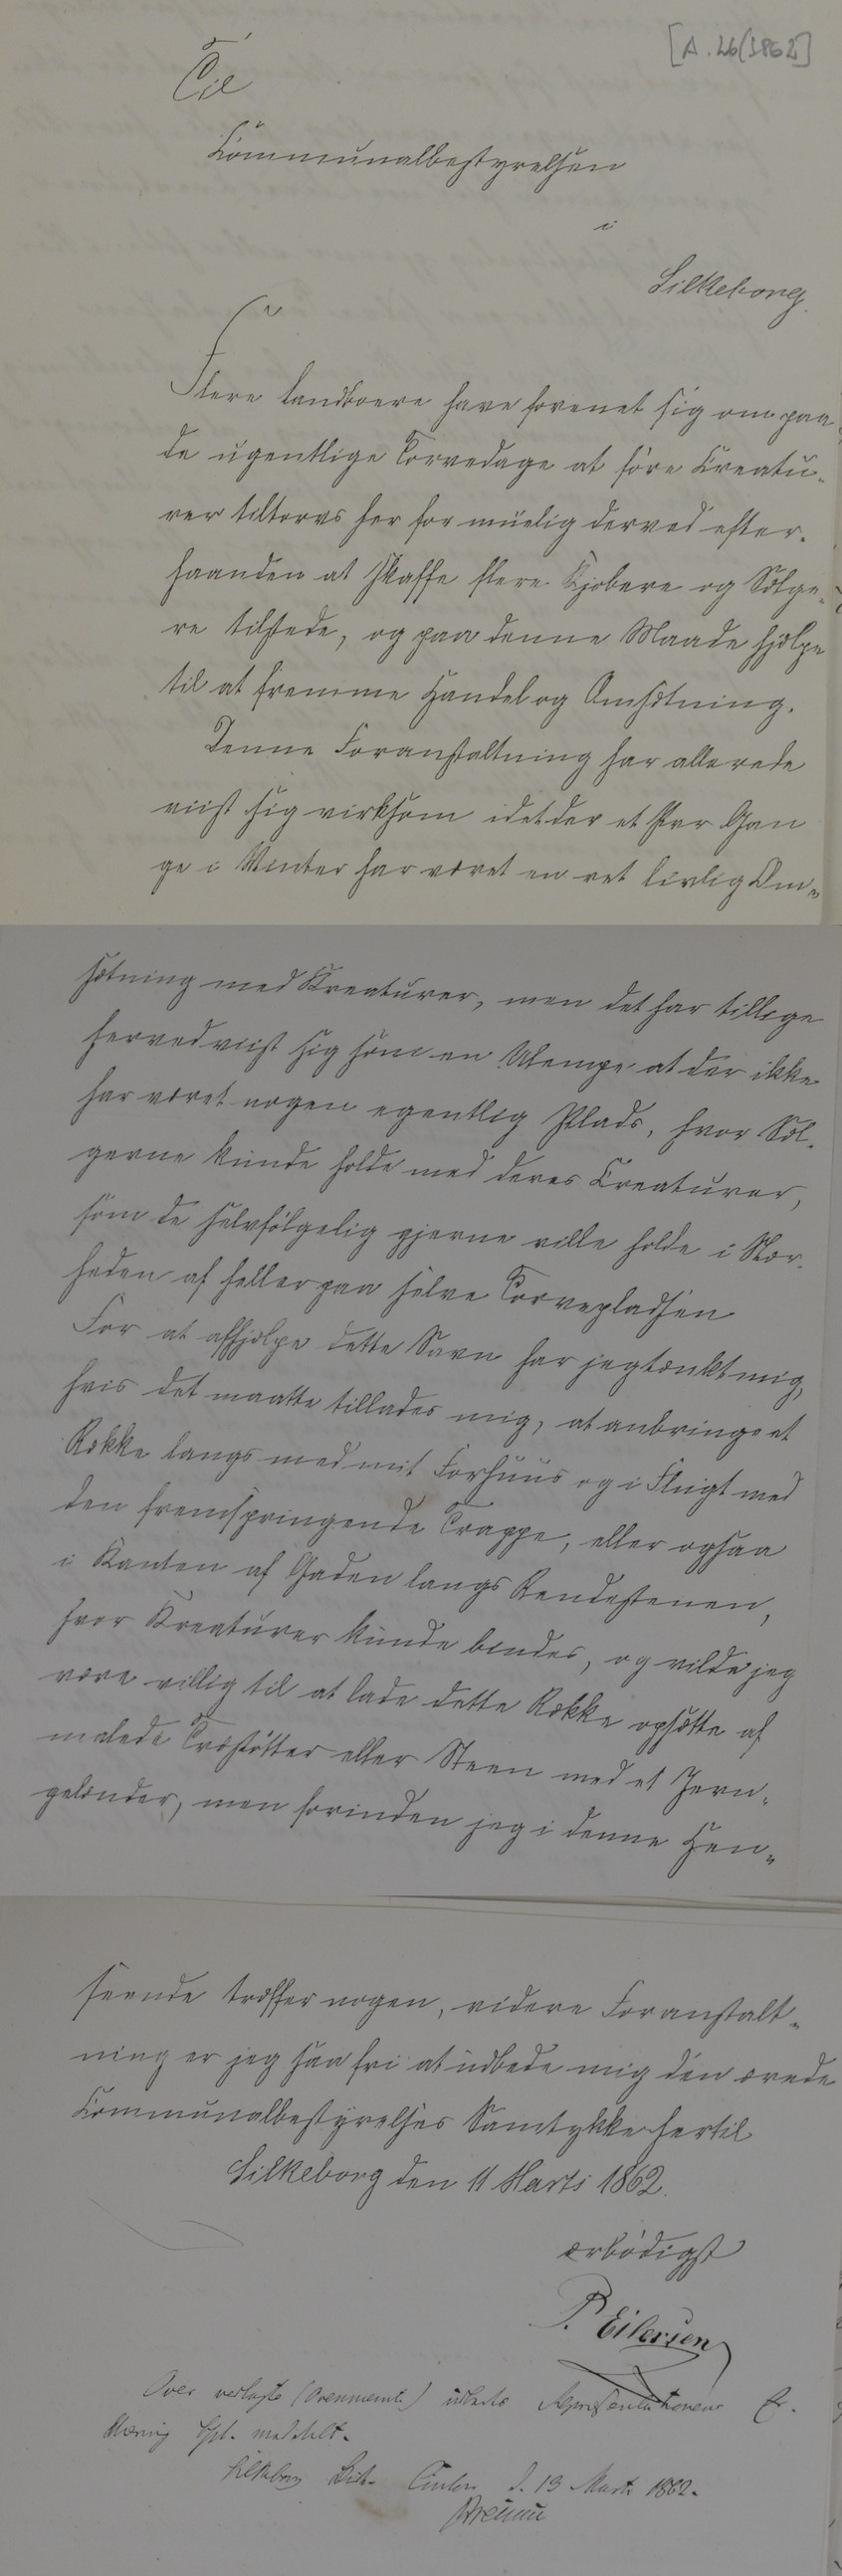 [A. 26(1862]
Til
Kommunalbestyrelsen
i
Silkeborg.
Flere Landboere have forenet sig om paa
de ugentlige Torvedage at føre Kreatu-
rer tiltorvs her for muelig derved efter-
haanden at skaffe flere Kjøbere og Sælge-
re tilstede, og paa denne Maade hjælpe
til at fremme Handel og Omsætning.
Denne Foranstaltning har allerede
viist sig virksom idet der et Par Gan
ge i Vinter har været en ret livlig Om-
sætning med Kreaturer, men det har tillige
herved viist sig som en Ulempe at der ikke
har været nogen egentlig Plads, hvor Sæl-
gerne kunde holde med deres Creaturer,
som de selvfølgelig gjerne ville holde i Nær-
heden af heller paa selve Torvepladsen
For at afhjælpe dette Savn har jeg tænkt mig,
hvis det maatte tillades mig, at anbringe et
Række langs med mit Forhuus og i Flugt med
den fremspringende Trappe, eller ogsaa
i Kanten af Gaden langs Rendestenen,
hvor Kreaturer kunde bindes, og vilde jeg
være villig til at lade dette Række opsætte af
malede Træstøtter eller Steen med et Jern-
gelænder, men forinden jeg i denne Hen-
seende træffer nogen, videre Foranstalt-
ning er jeg saa fri at udbede mig den ærede
Kommunalbestyrelses Samtykke hertil
Silkeborg den 11 Marts 1862.
ærbødigst
P. Eilersen
Over vedlagte udbedes Repræsentationens Er-
klæring meddelt.
Silkeborg d. 13 Marts 1862.